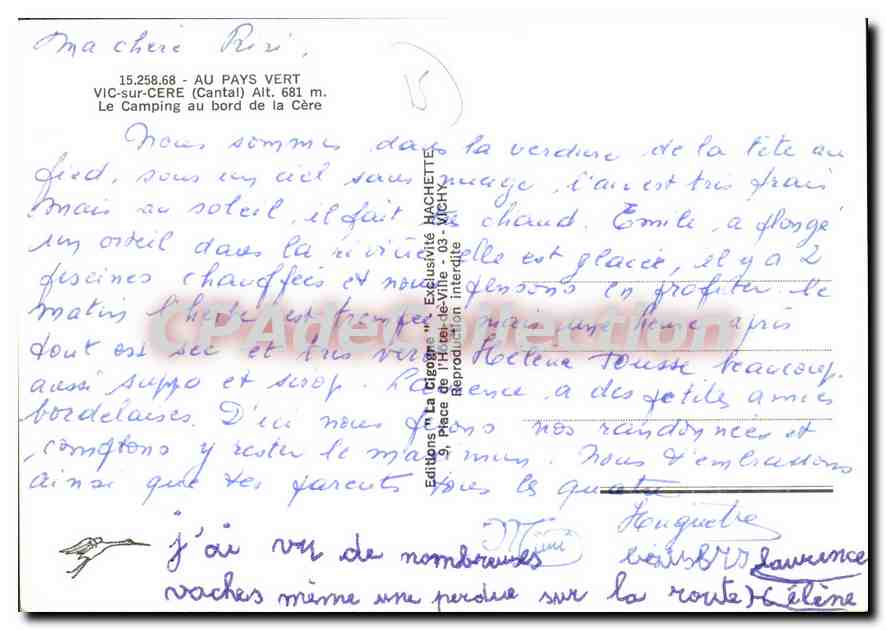 Ma chère Riri,
15
15.258.68 - AU PAYS VERT
VIC-sur-CERE (Cantal) Alt. 681 m.
Le Camping au bord de la Cère
Nous sommes dans la verdure de la tête au
pied, sous un ciel sans nuage, l'air est très frais
mais au soleil, il fait chaud. Emile, a plongé
un orteil dans la rivière elle est glacée, il y a 2
piscines chauffées et nous pensons en profiter. Le
matin l'herbe est trempée mais une heure après
tout est sec et très vert. Hélène tousse beaucoup.
aussi suppo et sirop. Laurence a des petites amies
bordelaises. D'ici nous ferons nos randonnées et
comptons y rester le maximum. Nous t'embrassons
ainsi que tes parents tous les quatre
Huguette
Mimi
j'ai vu de nombreuses baisers laurence
vaches même une perdue sur la route Hélène
Editions " La Cigogne " - Exclusivité HACHETTE
9, Place de l'Hôtel-de-Ville - 03 - VICHY
Reproduction interdite
CPAdeCollection